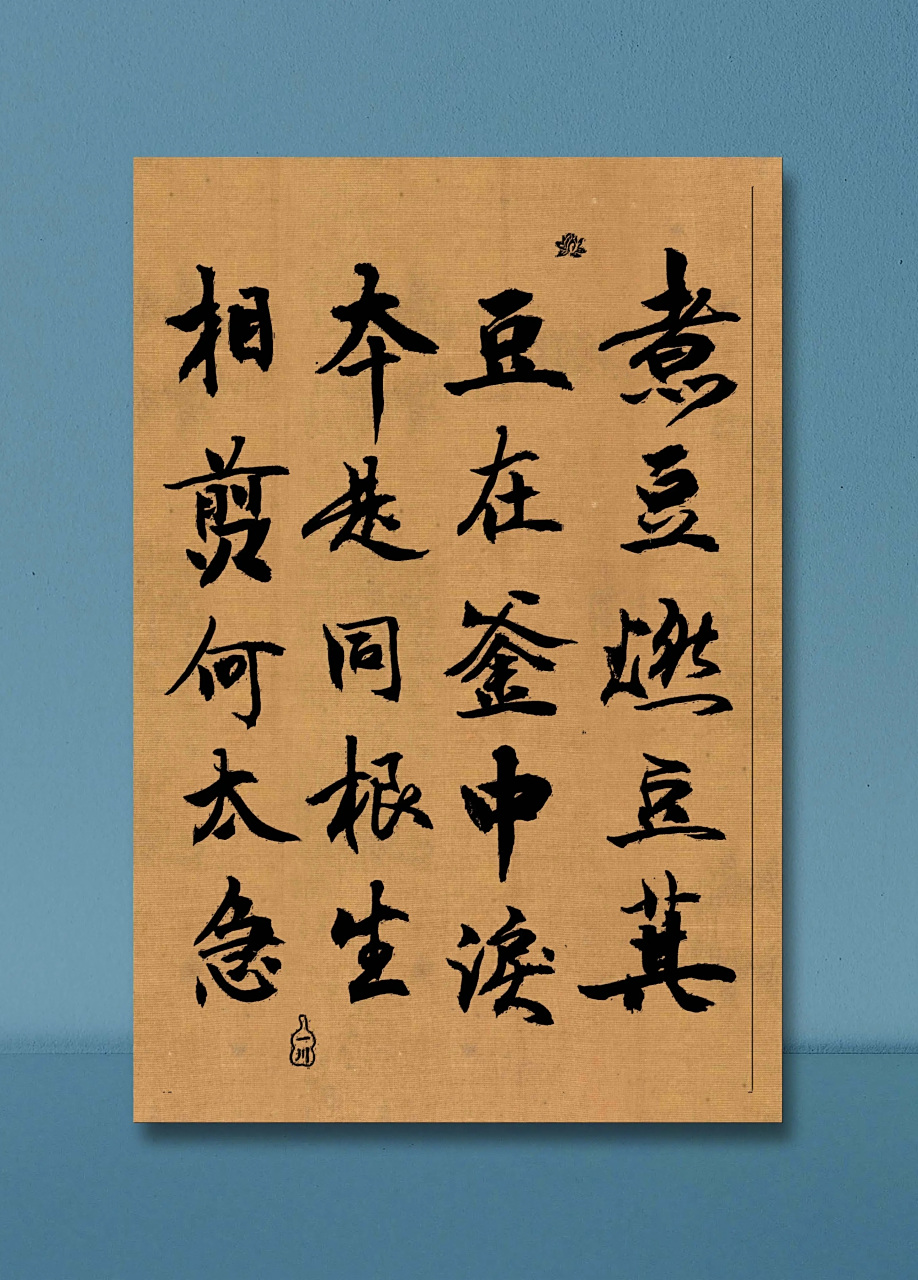 煮豆燃豆萁
豆在釜中淚
本是同根生
相煎何太急
一川